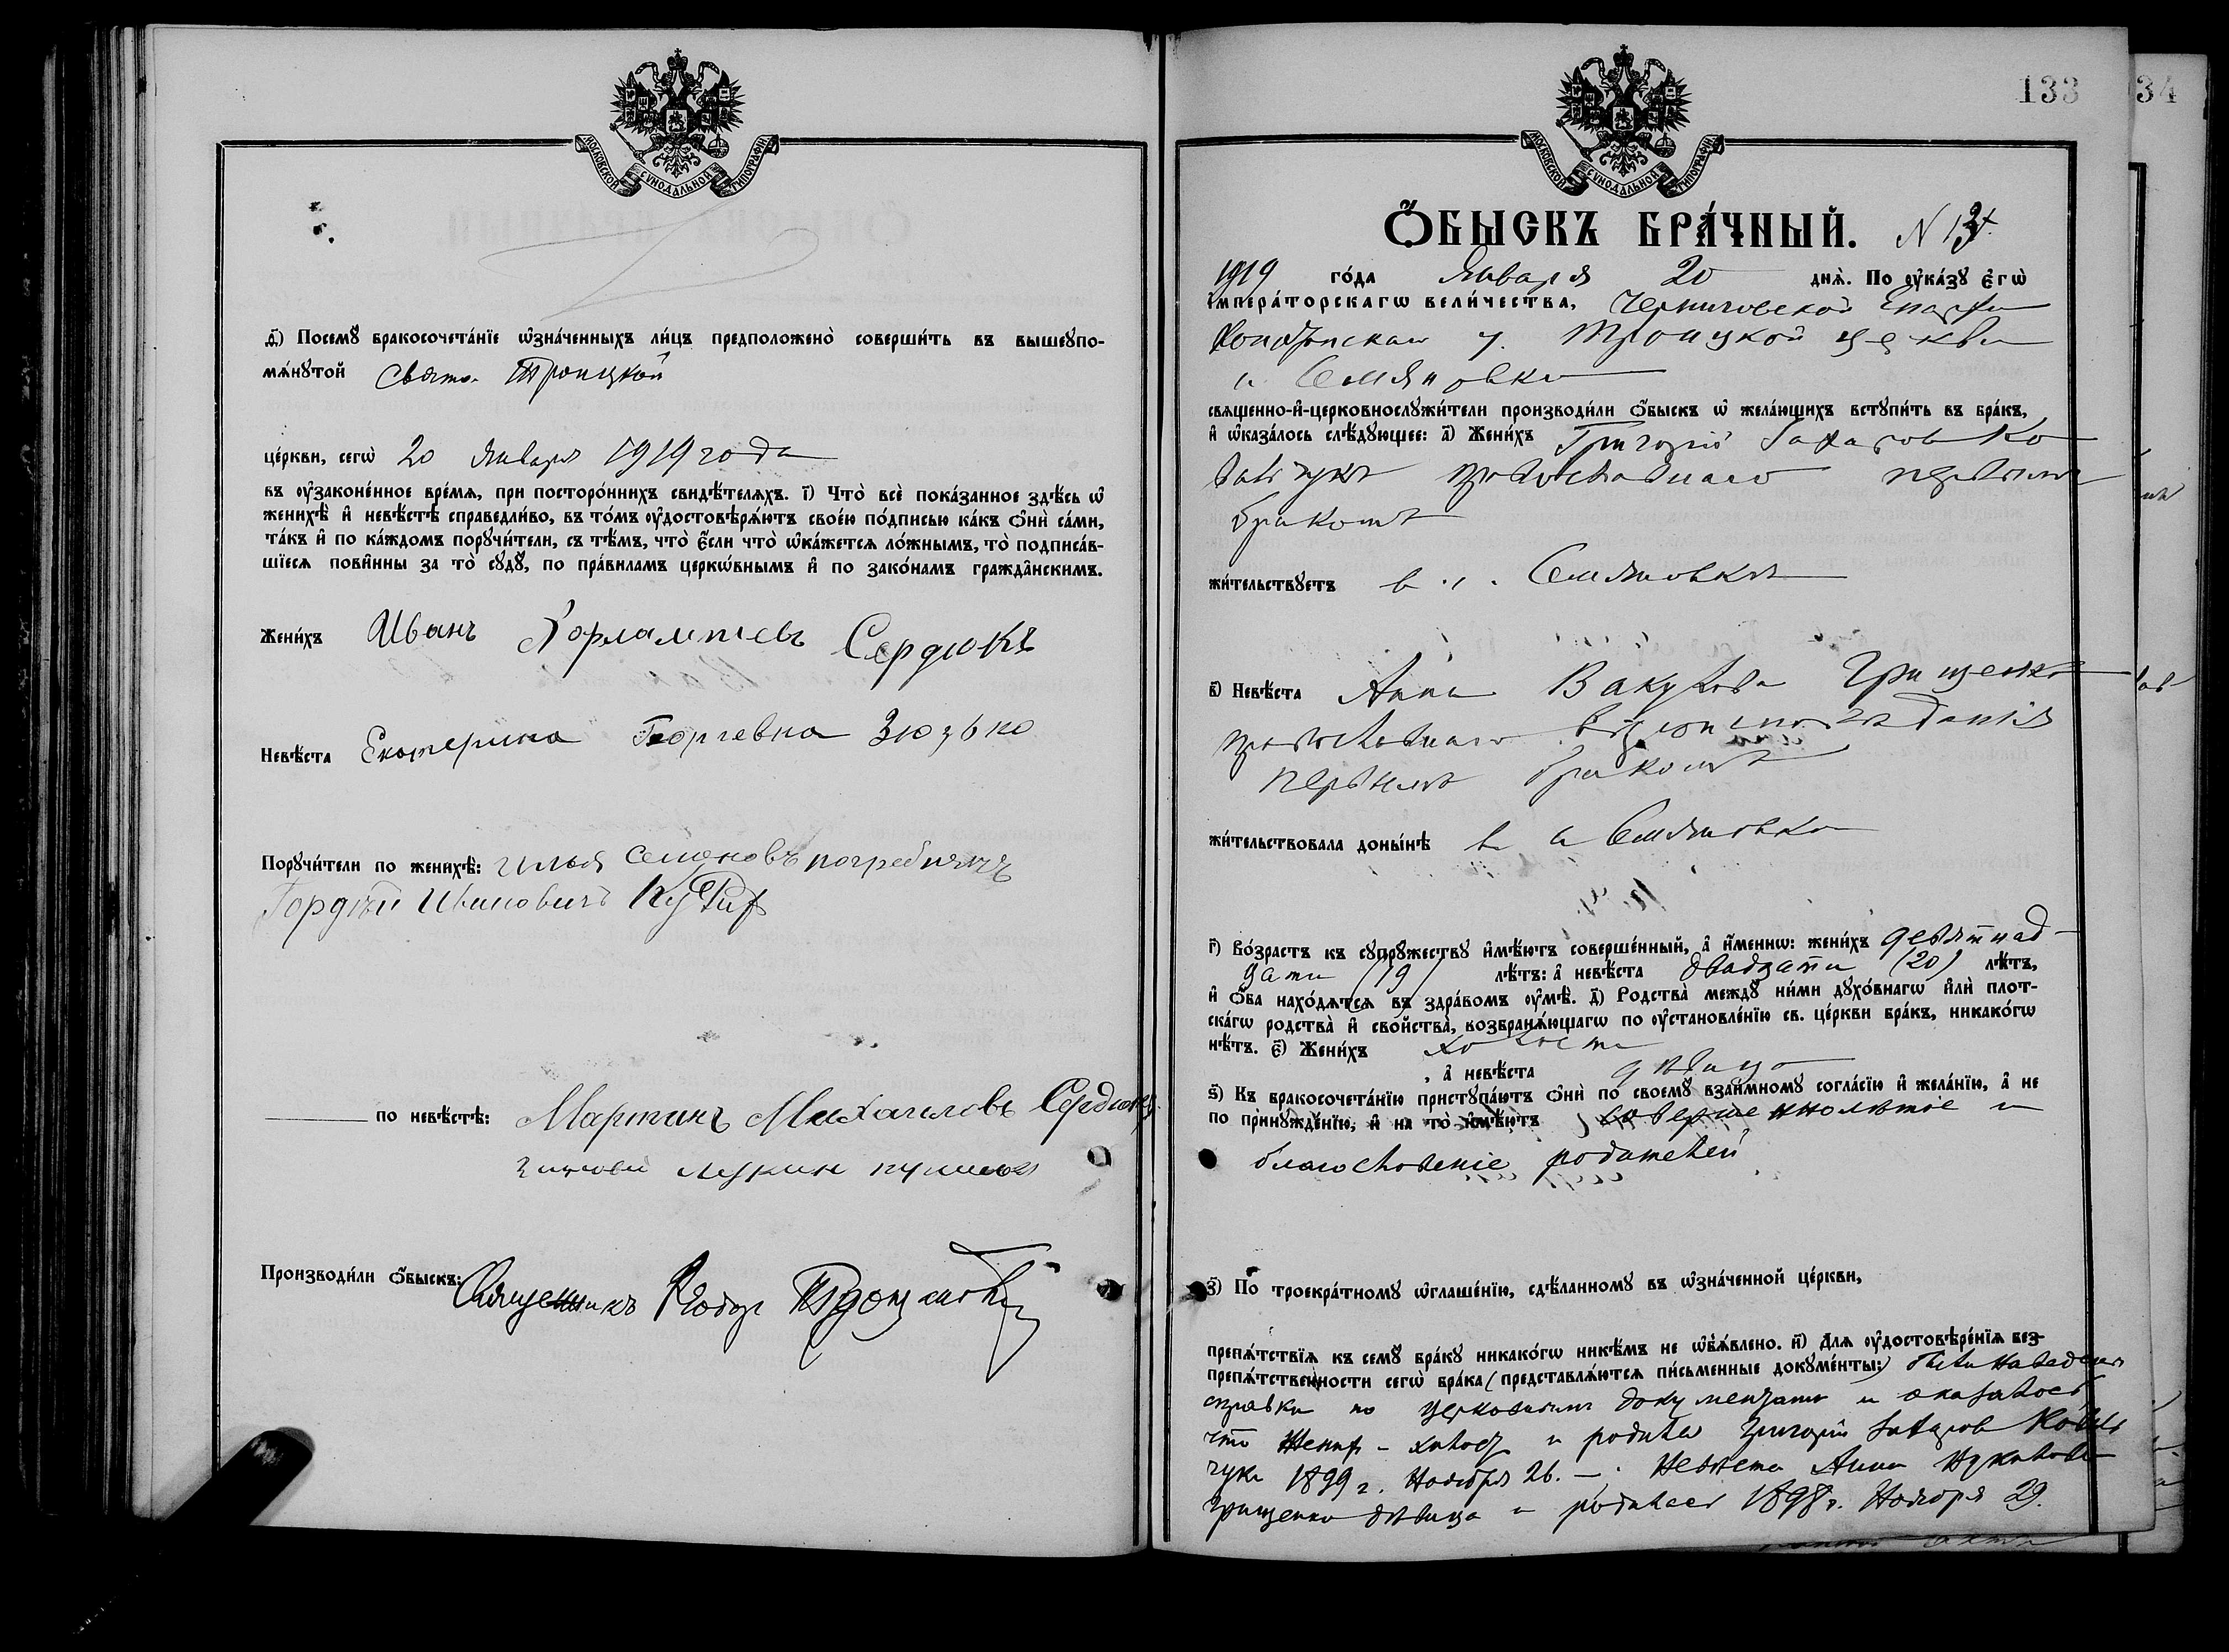 МОСКОВСКОЙ СУНОДАЛЬНОЙ ТИПОГРАФІИ
д҃) Посемꙋ бракосочета́нїе ѡ҆зна́ченныхъ ли́цъ предположено̀ соверши́ть въ вышеꙋпо-
мѧ́нꙋтой Свято-Троицкой
це́ркви, сегѡ̀ 20 Января 1919 года
въ ᲂу҆законе́нное вре́мѧ, при посторо́ннихъ свидѣ́телѧхъ. і҃) Что̀ всѐ пока́занное здѣ́сь ѡ҆
женихѣ̀ и҆ невѣ́стѣ справедли́во, въ то́мъ ᲂу҆достовѣрѧ́ютъ свое́ю по́дписью ка́къ ѻ҆нѝ са́ми,
та́къ и҆ по ка́ждомъ порꙋчи́тели, съ тѣ́мъ, что̀ є҆́сли что̀ ѡ҆ка́жетсѧ ло́жнымъ, то̀ подписа́в-
шїесѧ пови́нны за то̀ сꙋдꙋ̀, по пра́виламъ церкѡ́внымъ и҆ по зако́намъ гражда́нскимъ.
Жени́хъ Иванъ Хорлампиевъ Сердюкъ
Невѣ́ста Екатерина Георгевна Зюзько
Порꙋчи́тели по женихѣ̀: Илья Семеновъ погребнякъ
Гордѣй Ивановичъ
по невѣ́стѣ: Мартинъ Михаиловъ Сердюкъ
Производи́ли ѻ҆́быскъ: Священникъ
133 34
МОСКОВСКОЙ СУНОДАЛЬНОЙ ТИПОГРАФІИ
Ѻ҆́БЫСКЪ БРА́ЧНЫЙ. N 13
1919 го́да Января 20 днѧ̀. По ᲂу҆ка́зꙋ є҆гѡ̀
и҆мпера́торскагѡ вели́чества, Черниговской Епархіи
Конотопскаго у. Троицкой церкви
с. Семяновки
свѧщенно-и҆-церковнослꙋжи́тели производи́ли ѻ҆́быскъ ѡ҆ жела́ющихъ встꙋпи́ть въ бра́къ,
и҆ ѡ҆каза́лось слѣ́дꙋющее: а҃) Жени́хъ Григорій Захаров Ко
вальчукъ православнаго первымъ
бракомъ
жи́тельствꙋетъ в с. Семяновкѣ
в҃) Невѣ́ста Анна Вакулова Грищенко
православнаго вѣроисповѣданія
первымъ бракомъ
жи́тельствовала доны́нѣ в с Семяновки
г҃) Во́зрастъ къ сꙋпрꙋ́жествꙋ и҆мѣ́ютъ соверше́нный, а҆ и҆́меннѡ: жени́хъ девятнад-
цати (19) лѣ́тъ: а҆ невѣ́ста двадцати (20) лѣ́тъ,
и҆ ѻ҆́ба нахо́дѧтсѧ въ здра́вомъ ᲂу҆мѣ̀. д҃) Родства̀ междꙋ ни́ми дꙋхо́внагѡ и҆лѝ плот-
ска́гѡ родства̀ и҆ сво́йства, возбранѧ́ющагѡ по ᲂу҆становле́нїю св. це́ркви бра́къ, никако́гѡ
нѣ́тъ. є҃) Жени́хъ холостъ
, а҆ невѣ́ста дѣвица
ѕ҃) Къ бракосочета́нїю пристꙋпа́ютъ ѻ҆нѝ по своемꙋ̀ взаи́мномꙋ согла́сїю и҆ жела́нїю, а҆ не
по принꙋжде́нїю, и҆ на то̀ и҆мѣ́ютъ совершеннолѣтіе и
благословеніе родителей
з҃) По троекра́тномꙋ ѡ҆глаше́нїю, сдѣ́ланномꙋ въ ѡ҆зна́ченной це́ркви,
препѧ́тствїѧ къ семꙋ̀ бра́кꙋ никако́гѡ никѣ́мъ не ѡ҆бъѧ́влено. и҃) Длѧ ᲂу҆достовѣре́нїѧ без-
препѧ́тственности сегѡ̀ бра́ка (представлѧ́ютсѧ пи́сьменные докꙋме́нты:) были наведены
справки по церковнымъ документамъ и оказалось
что Жених - холост и родился Григорій Захаров Коваль
чукъ 1899 г. Ноября 26. —. Невѣста Анна Вукулова
Грищенко дѣвица и родилась 1898 г. Ноября 29.